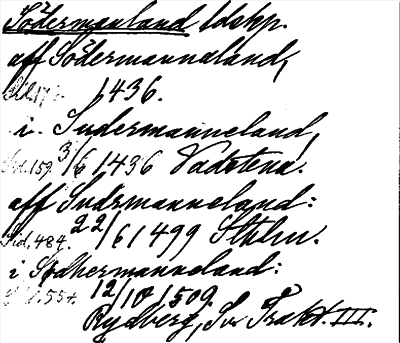 Södermanland ldskp.
aff Södermannaland,
1436.
i Sudermanneland,
Sid. 159. 3/6 1436 Vadstena.
aff Sudrmanneland:
Sid. 484. 22/6 1499 Sthlm.
i Södhermanneland:
554. 12/10 1509.
Rydberg, Sv. Trakt. III.